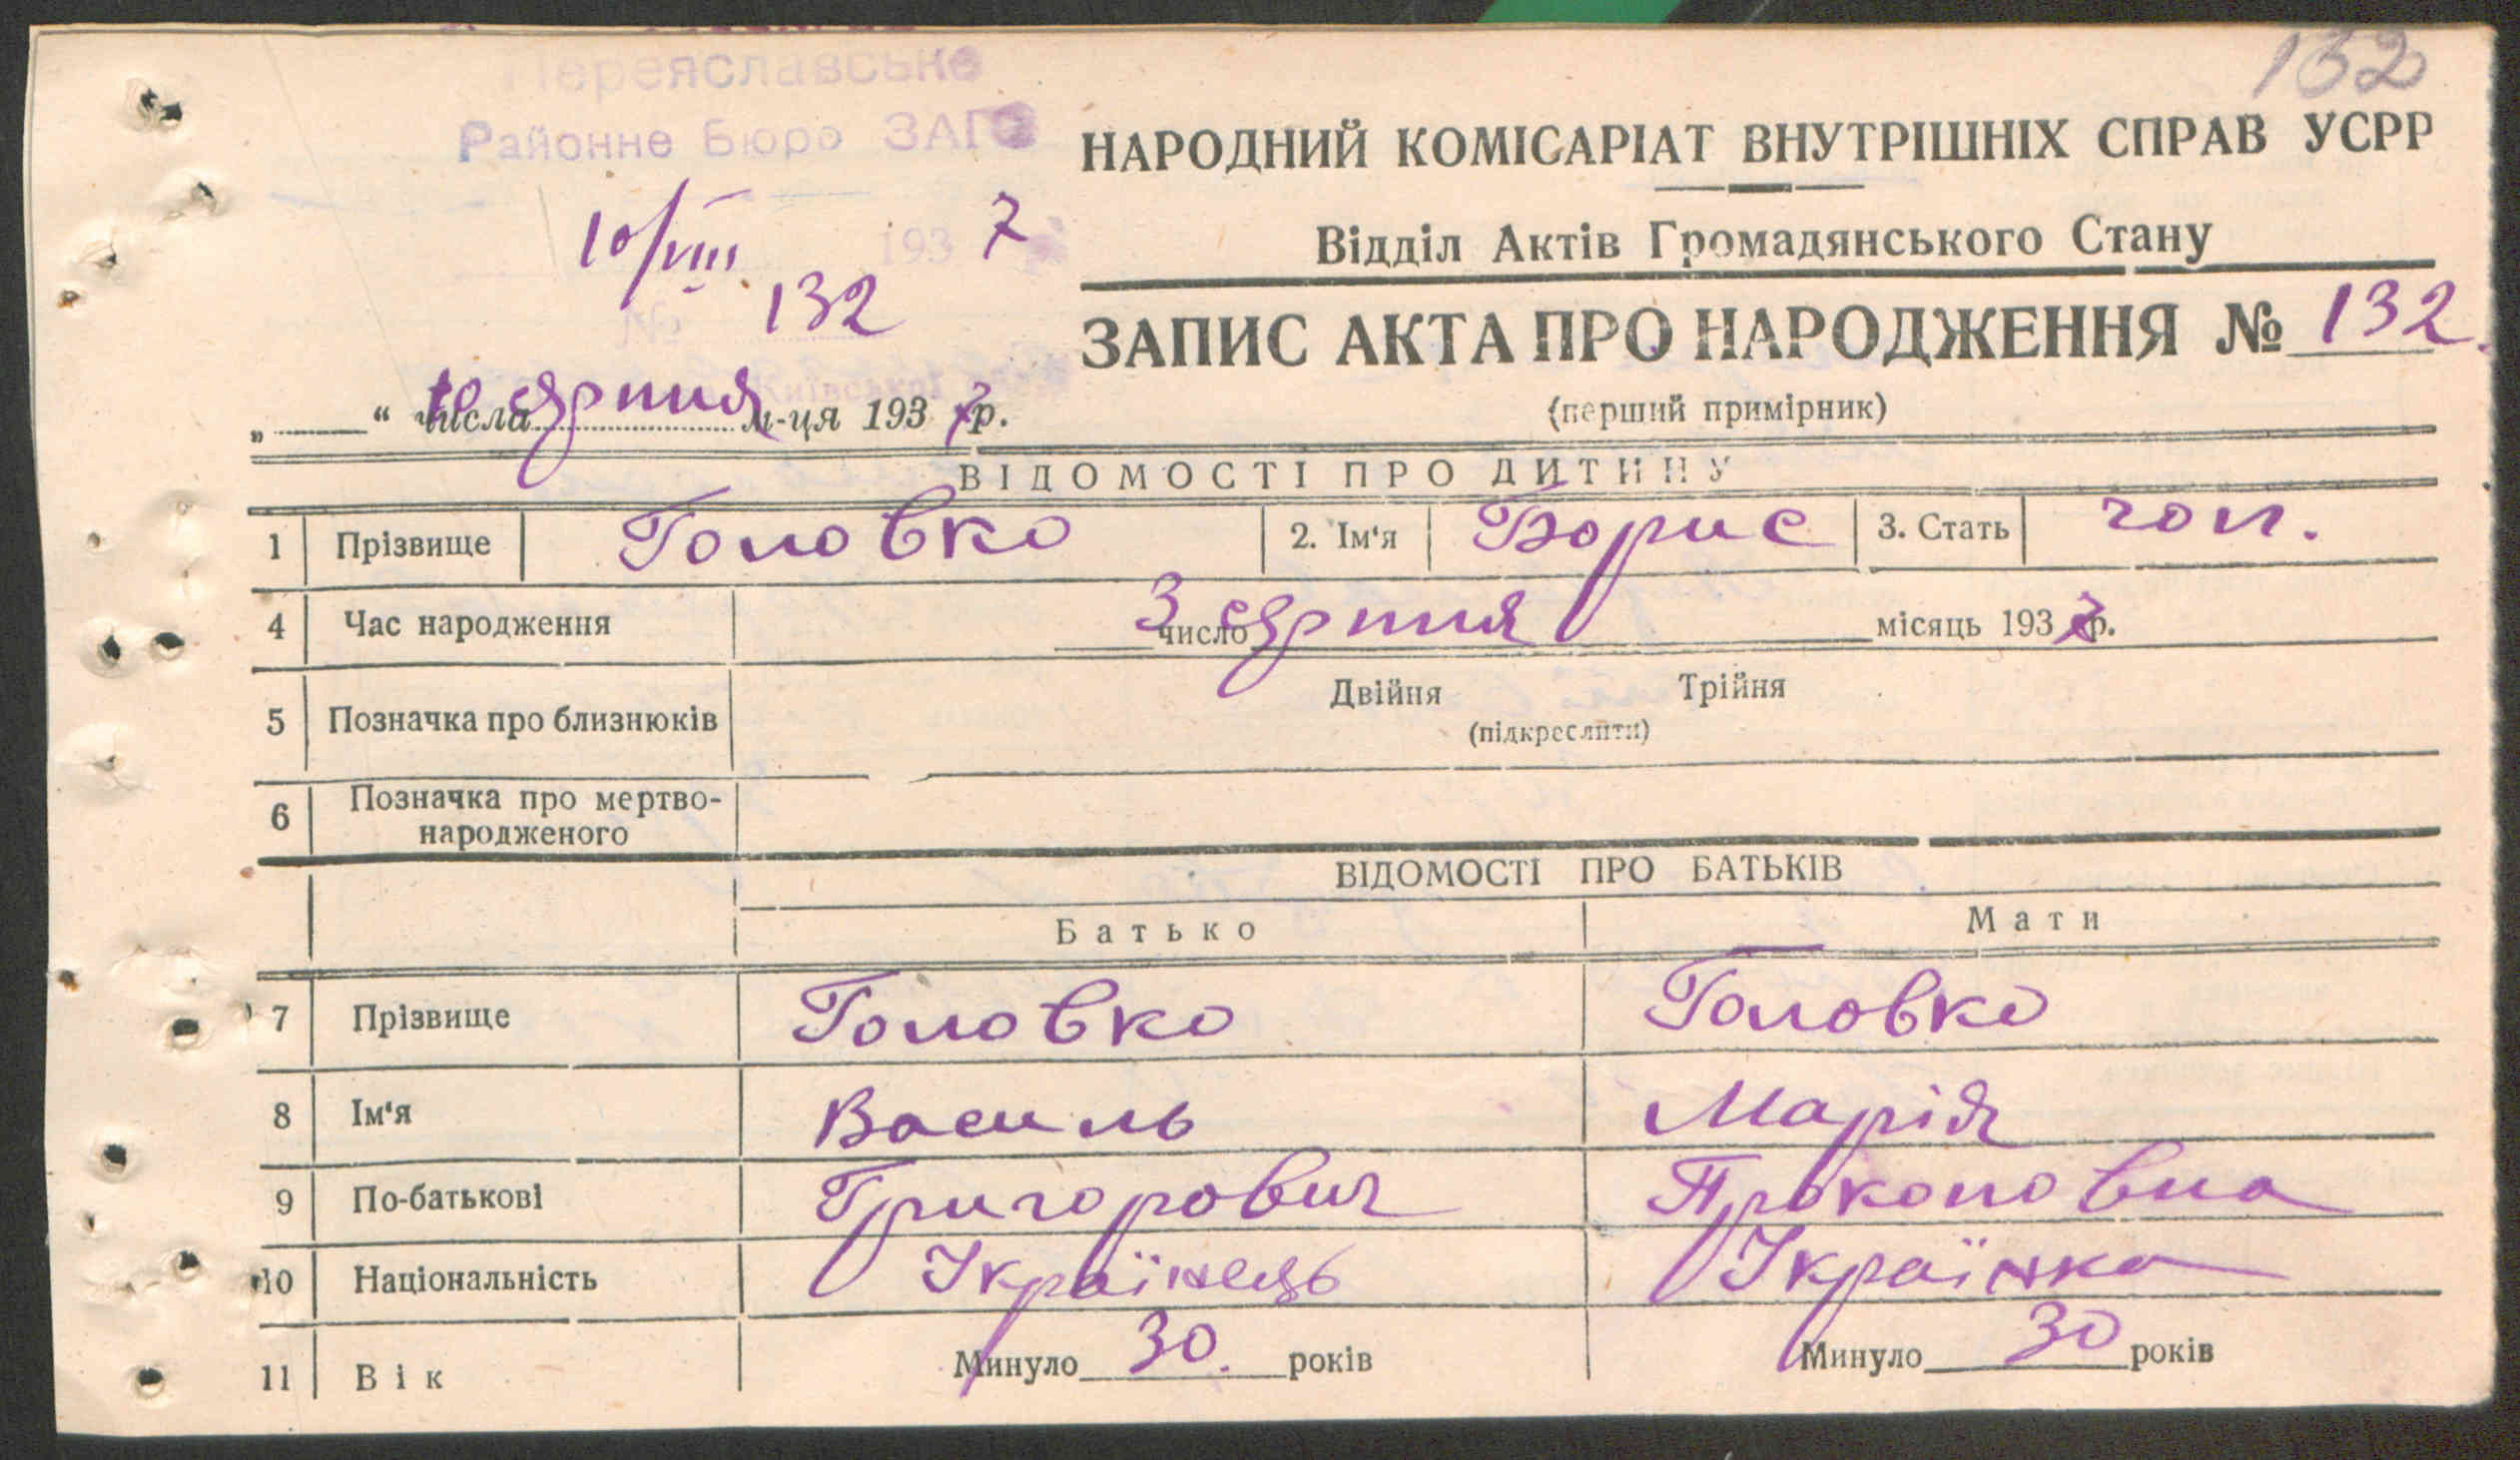 132
Переяславське
Районне Бюро ЗАГС
НАРОДНИЙ КОМІСАРІАТ ВНУТРІШНІХ СПРАВ УСРР
10/VIII 1937
Відділ Актів Громадянського Стану
№ 132
ЗАПИС АКТА ПРО НАРОДЖЕННЯ № 132.
Київської
„ “ числа 10 серпня м-ця 1937 р.
(перший примірник)
ВІДОМОСТІ ПРО ДИТИНУ
1 Прізвище Головко 2. Ім‘я Борис 3. Стать чол.
4 Час народження 3 число серпня місяць 1937 р.
5 Позначка про близнюків Двійня Трійня
(підкреслити)
6 Позначка про мертво-
народженого
ВІДОМОСТІ ПРО БАТЬКІВ
Батько Мати
7 Прізвище Головко Головко
8 Ім‘я Василь Марія
9 По-батькові Григорович Прокоповна
10 Національність Українець Українка
11 Вік Минуло 30. років Минуло 30 років